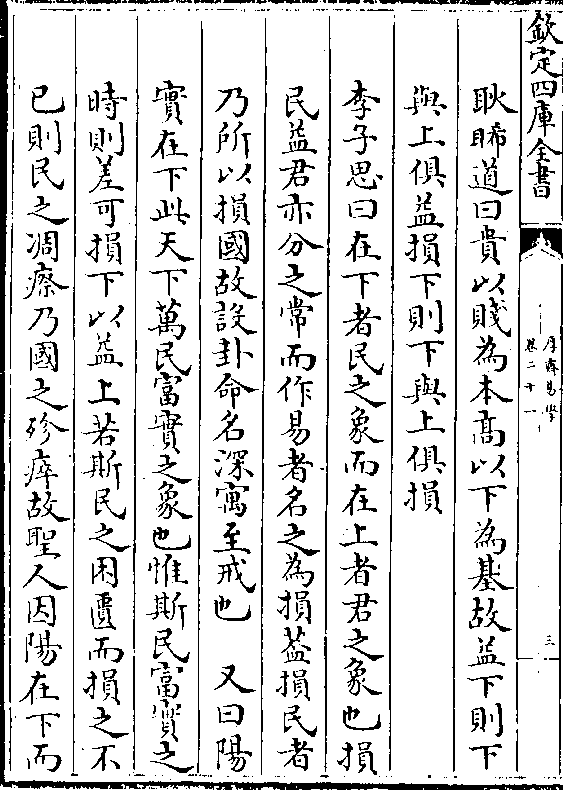 欽定四庫全書
厚齋易學
卷二十一
三
耿睎道曰貴以賤為本髙以下為基故益下則下
與上俱益損下則下與上俱損
李子思曰在下者民之象而在上者君之象也損
民益君亦分之常而作易者名之為損葢損民者
乃所以損國故設卦命名深寓至戒也　又曰陽
實在下此天下萬民富實之象也惟斯民富實之
時則差可損下以益上若斯民之困匱而損之不
已則民之凋瘵乃國之殄瘁故聖人因陽在下而